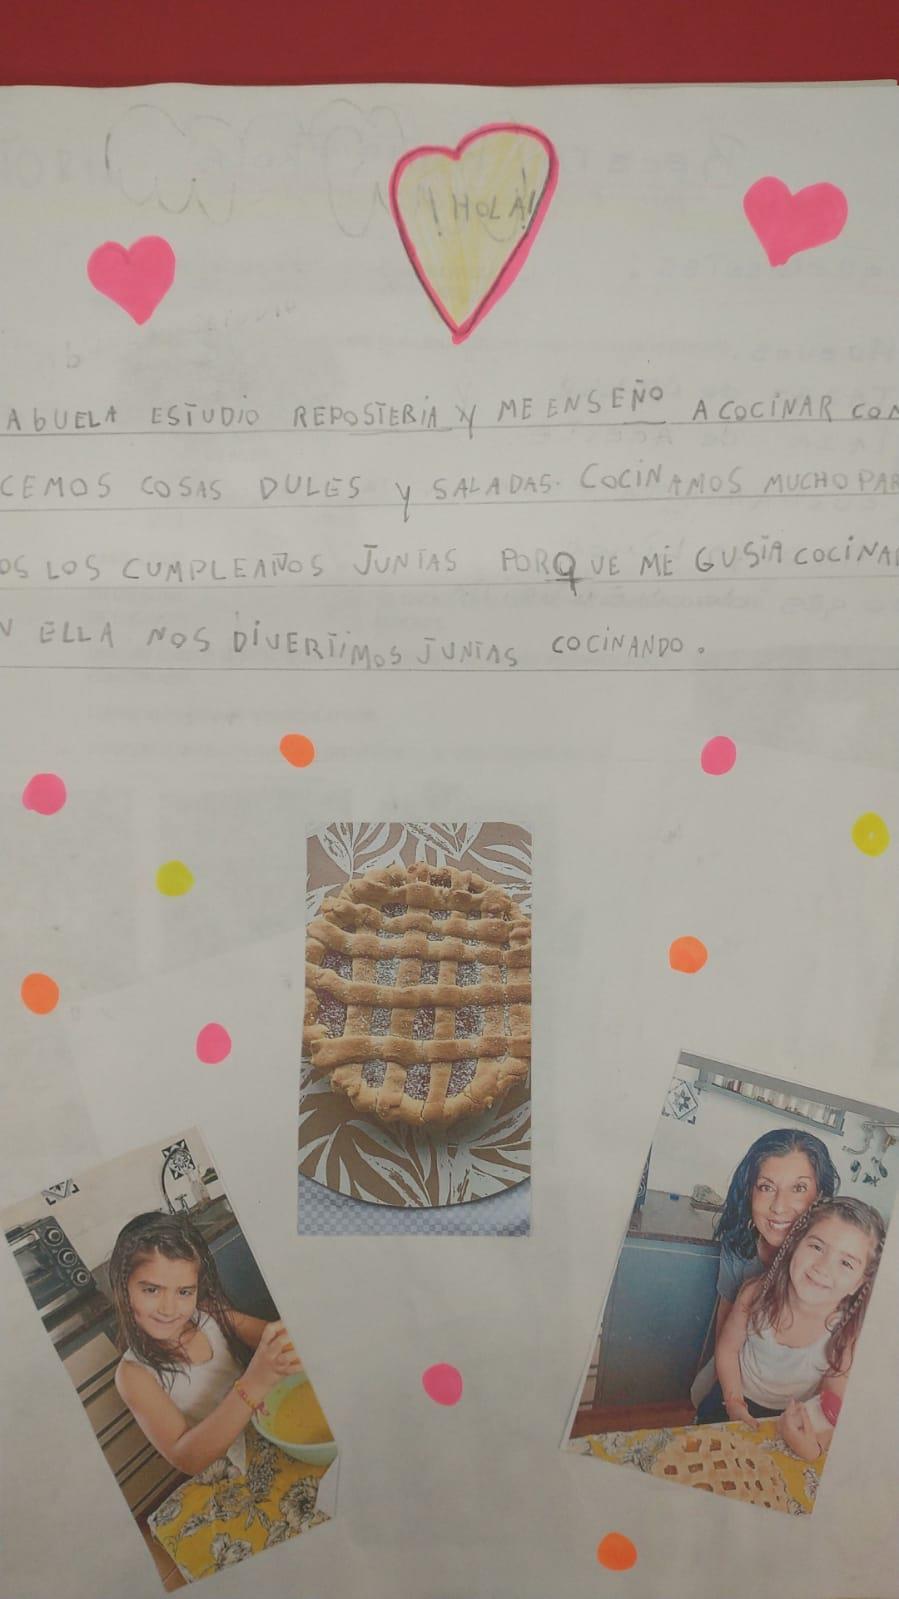 ¡HOLA!
ABUELA ESTUDIO REPOSTERIA Y ME ENSEÑO A COCINAR CON
CEMOS COSAS DULES Y SALADAS. COCINAMOS MUCHO PAR
OS LOS CUMPLEAÑOS JUNTAS PORQUE ME GUSTA COCINA
N ELLA NOS DIVERTIMOS JUNTAS COCINANDO.